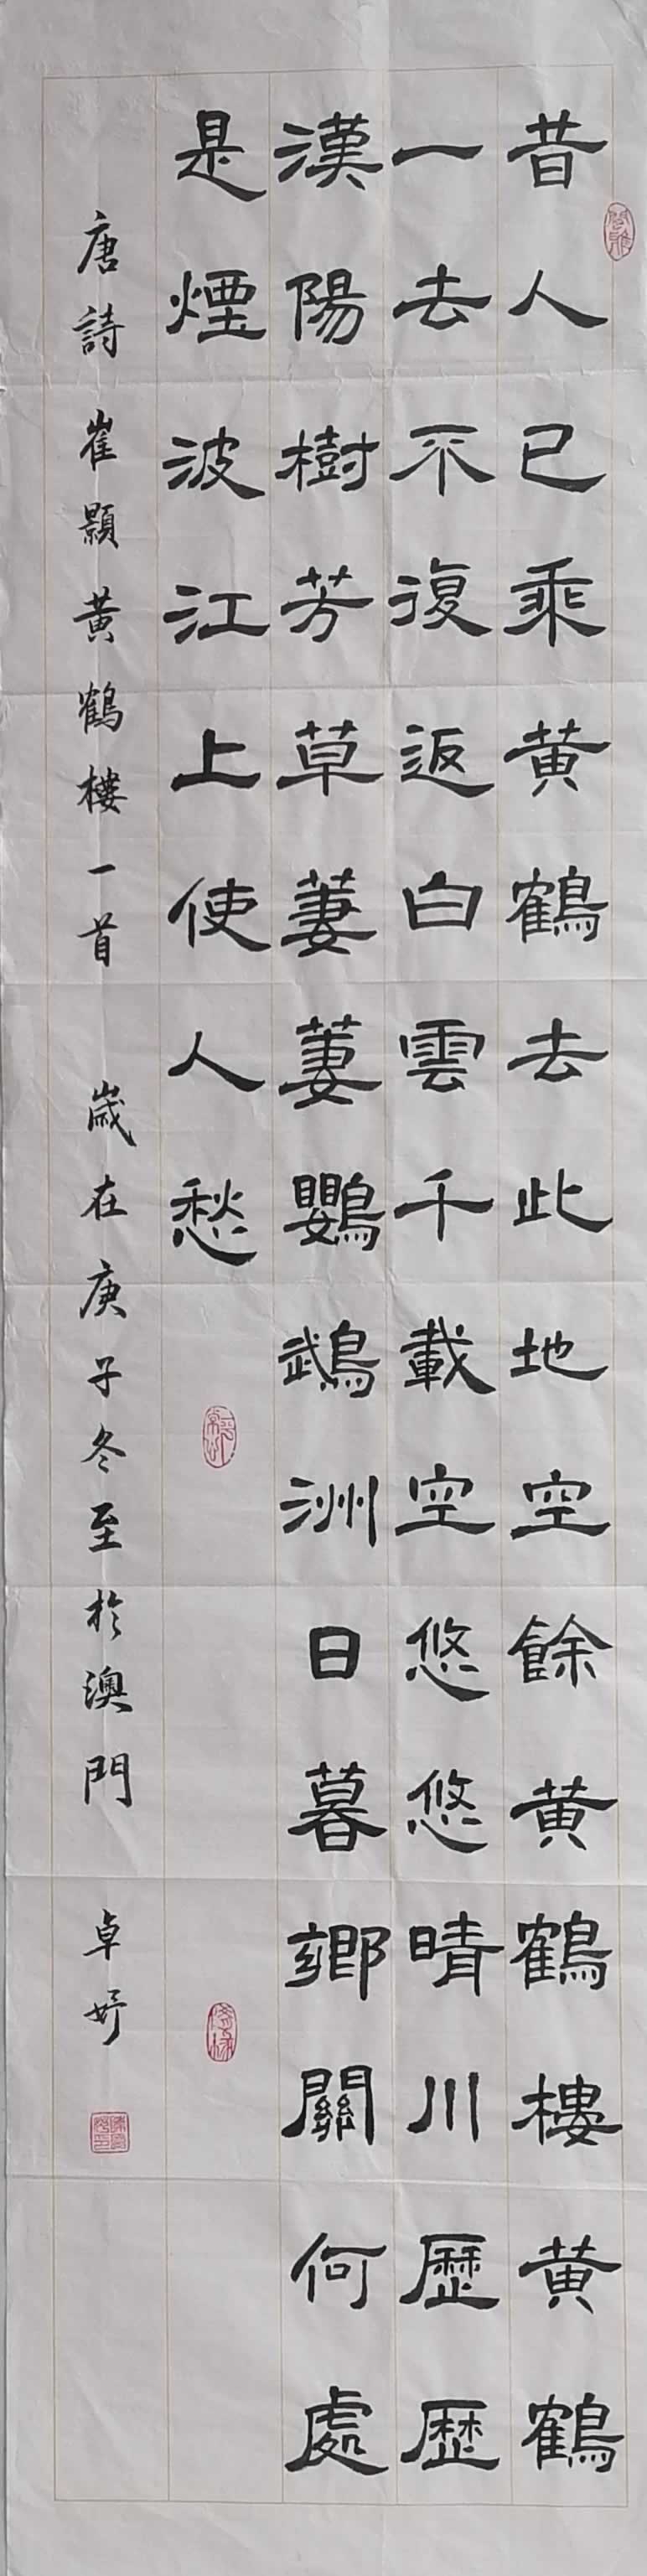 昔人已乘黄鶴去此地空餘黄鶴樓黄鶴
一去不復返白雲千載空悠悠晴川歷歷
漢陽樹芳草萋萋鸚鵡洲日暮鄉關何處
是煙波江上使人愁
唐詩崔顥黄鶴樓一首 歲在庚子冬至於澳門 卓妤